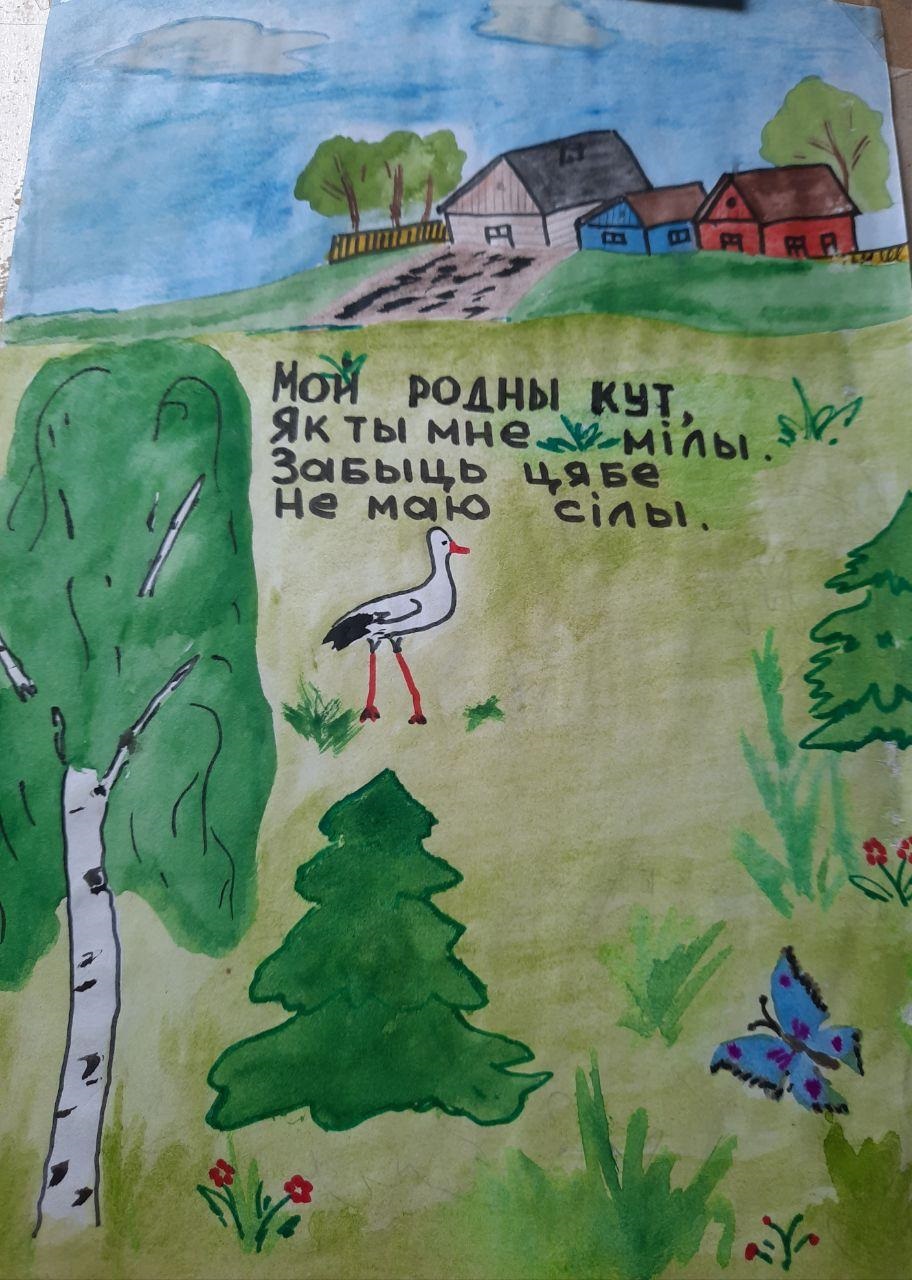 Мой родны кут,
Як ты мне мілы.
Забыць цябе
не маю сілы.